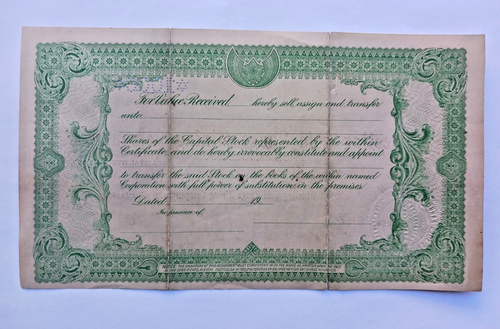 For Value Received hereby sell, assign and transfer
unto
Shares of the Capital Stock represented by the within
Certificate, and do hereby irrevocably constitute and appoint
to transfer the said Stock on the books of the within named
Corporation with full power of substitution in the premises.
Dated 19
In presence of